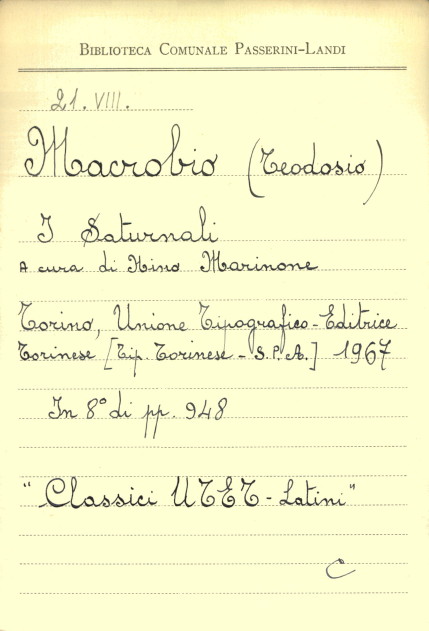 Biblioteca Comunale Passerini-Landi
21. VIII.
Macrobio (Teodosio)
I Saturnali
A cura di Nino Marinone
Torino, Unione Tipografico-Editrice
Torinese [Tip. Torinese - S.P.A.] 1967
In 8° di pp. 948
"Classici UTET - Latini"
C